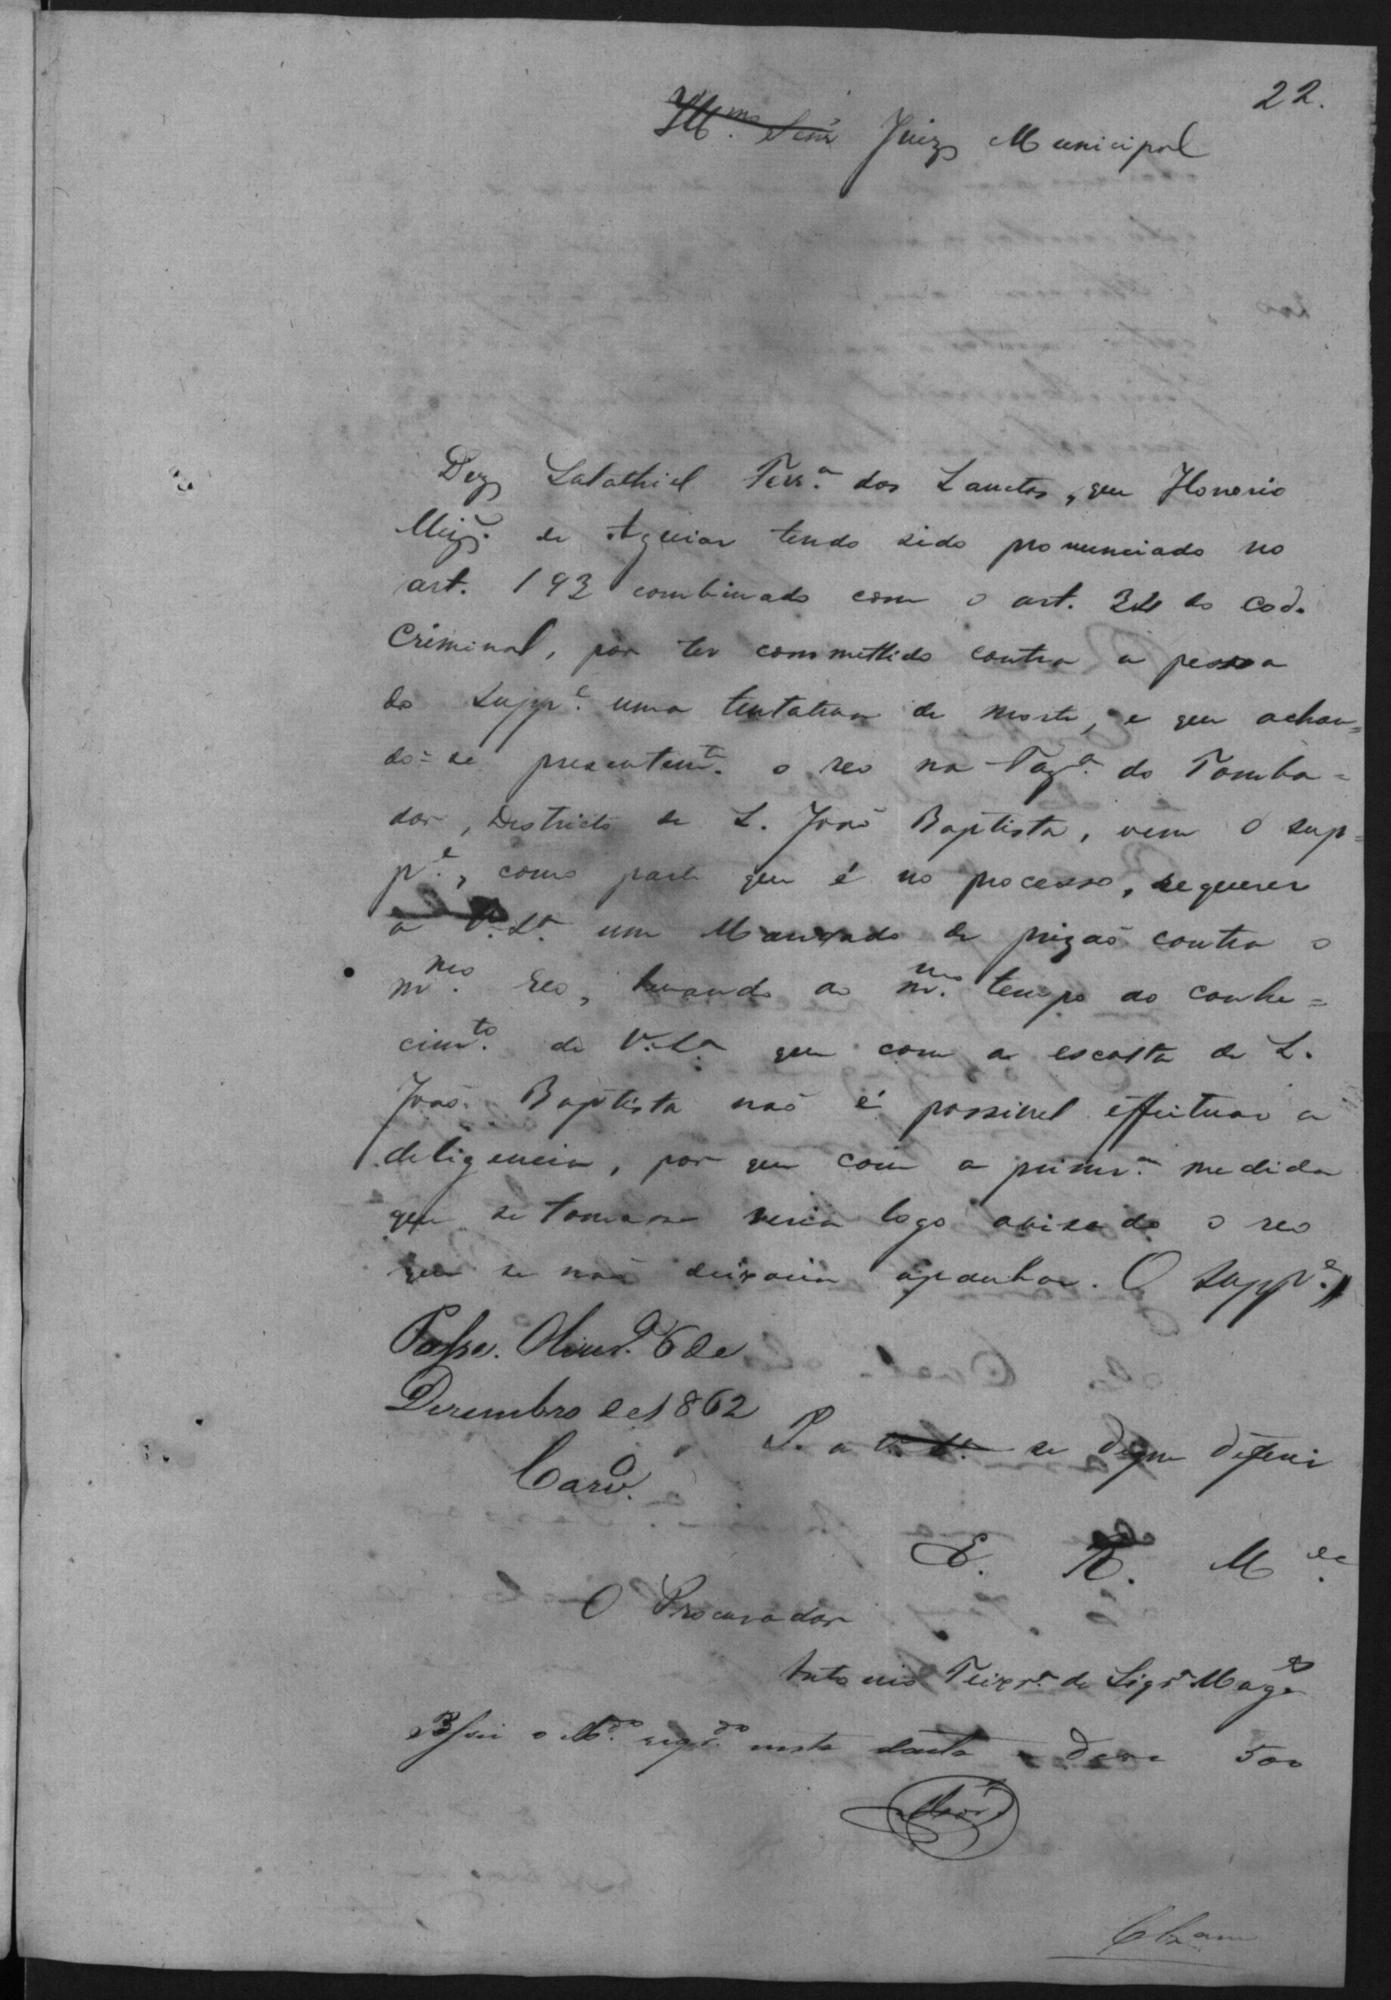 22.
Ill.mo Senr Juiz Municipal
Diz Salathiel Ferr.a dos Sanctos, que Honorio
de Aguiar tendo sido pronunciado no
art. 193 combinado com o art. 34 do cod.
Criminal, por ter commettido contra a pessoa
do Supp.e uma tentativa de morte, e que achan=
do=se presentem.te o reo na Faz.a do Tomba=
dor, Districto de S. João Baptista, vem o sup=
p.e, como parte que é no processo, requerer
a V.S.a um Mandado de prizão contra o
m.mo reo, levando ao m.mo tempo ao conhe=
cim.to de V.S.a que com a escolta de S.
João Baptista não é possivel effectuar a
deligencia, por que com a primr.a medida
que se tomasse seria logo avisado o reo
que se não deixaria apanhar. O Supp.e
Passe. 6 de
Dezembro de 1862
P. a V. S.a se digne deferir
Carv.o
E. R. M.ce
O Procurador
Antonio Teixr.a de Siqr.a Mag.es
o M.do reqr.do nesta data 500